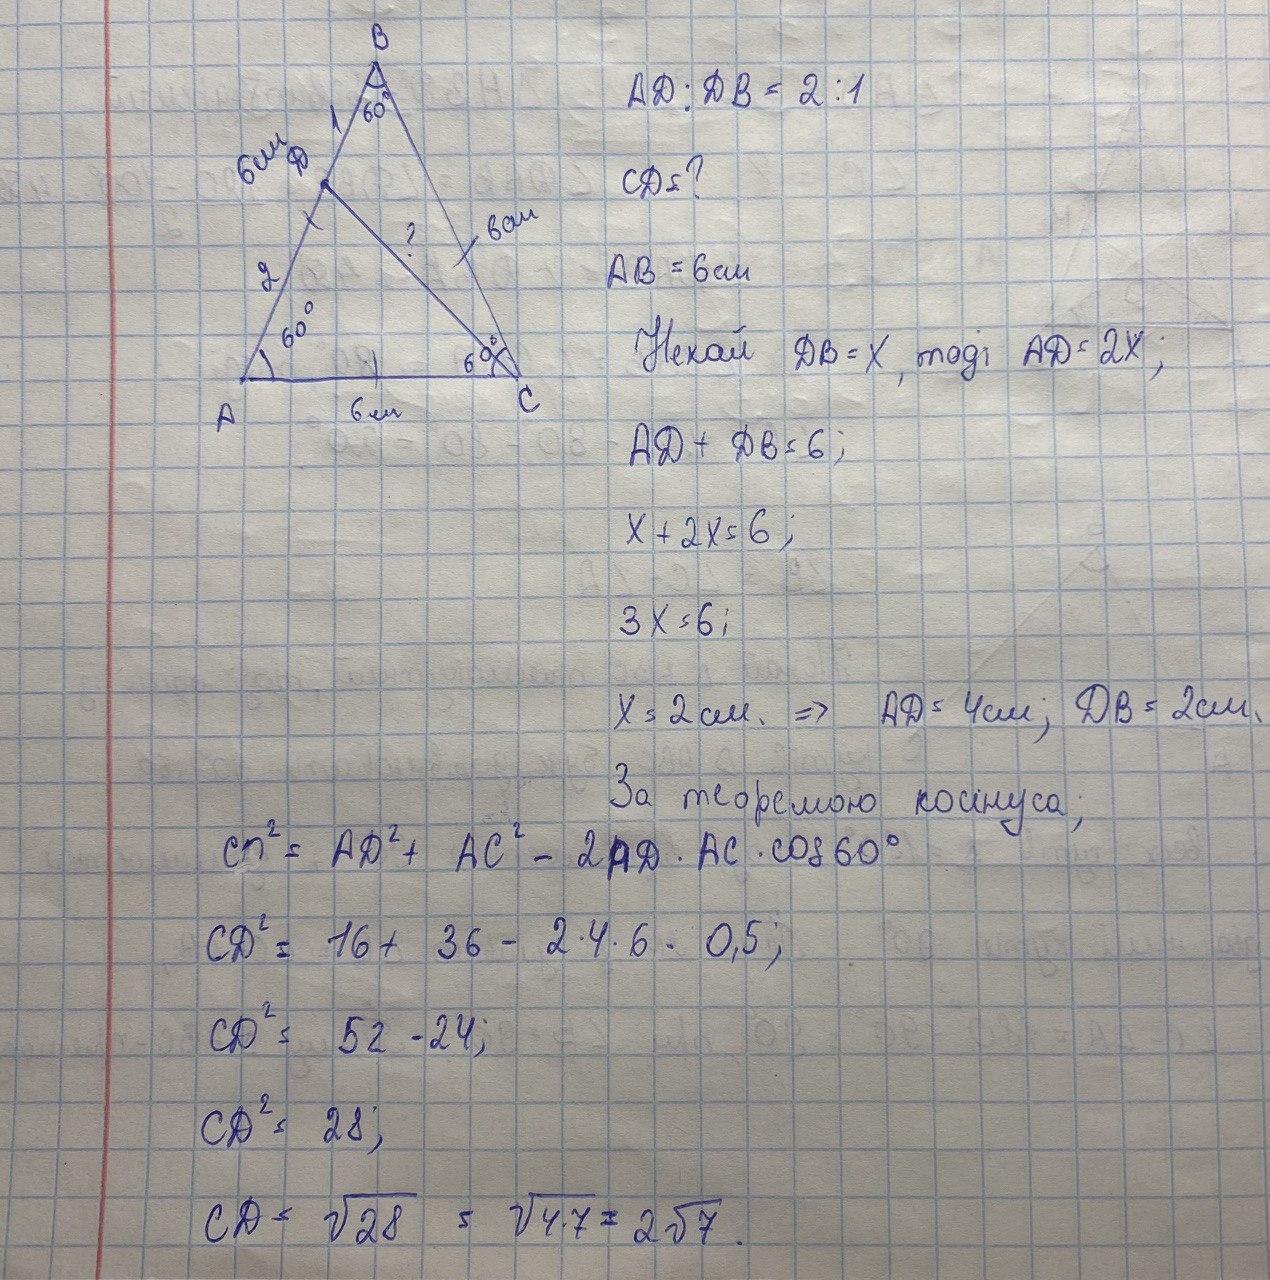 B
60°
1
6см
D
?
6см
2
60°
60°
A
6см
C
AD:DB = 2:1
CD=?
AB = 6см
Нехай DB=X, тоді AD=2X;
AD+ DB=6;
X+2X=6;
3X=6;
X=2см. => AD=4см; DB=2см.
За теоремою косінуса;
CD²= AD²+ AC² - 2AD · AC · cos60°
CD²= 16+ 36 - 2·4·6 · 0,5;
CD²= 52 - 24;
CD²= 28;
CD= √28 = √4·7 = 2√7.